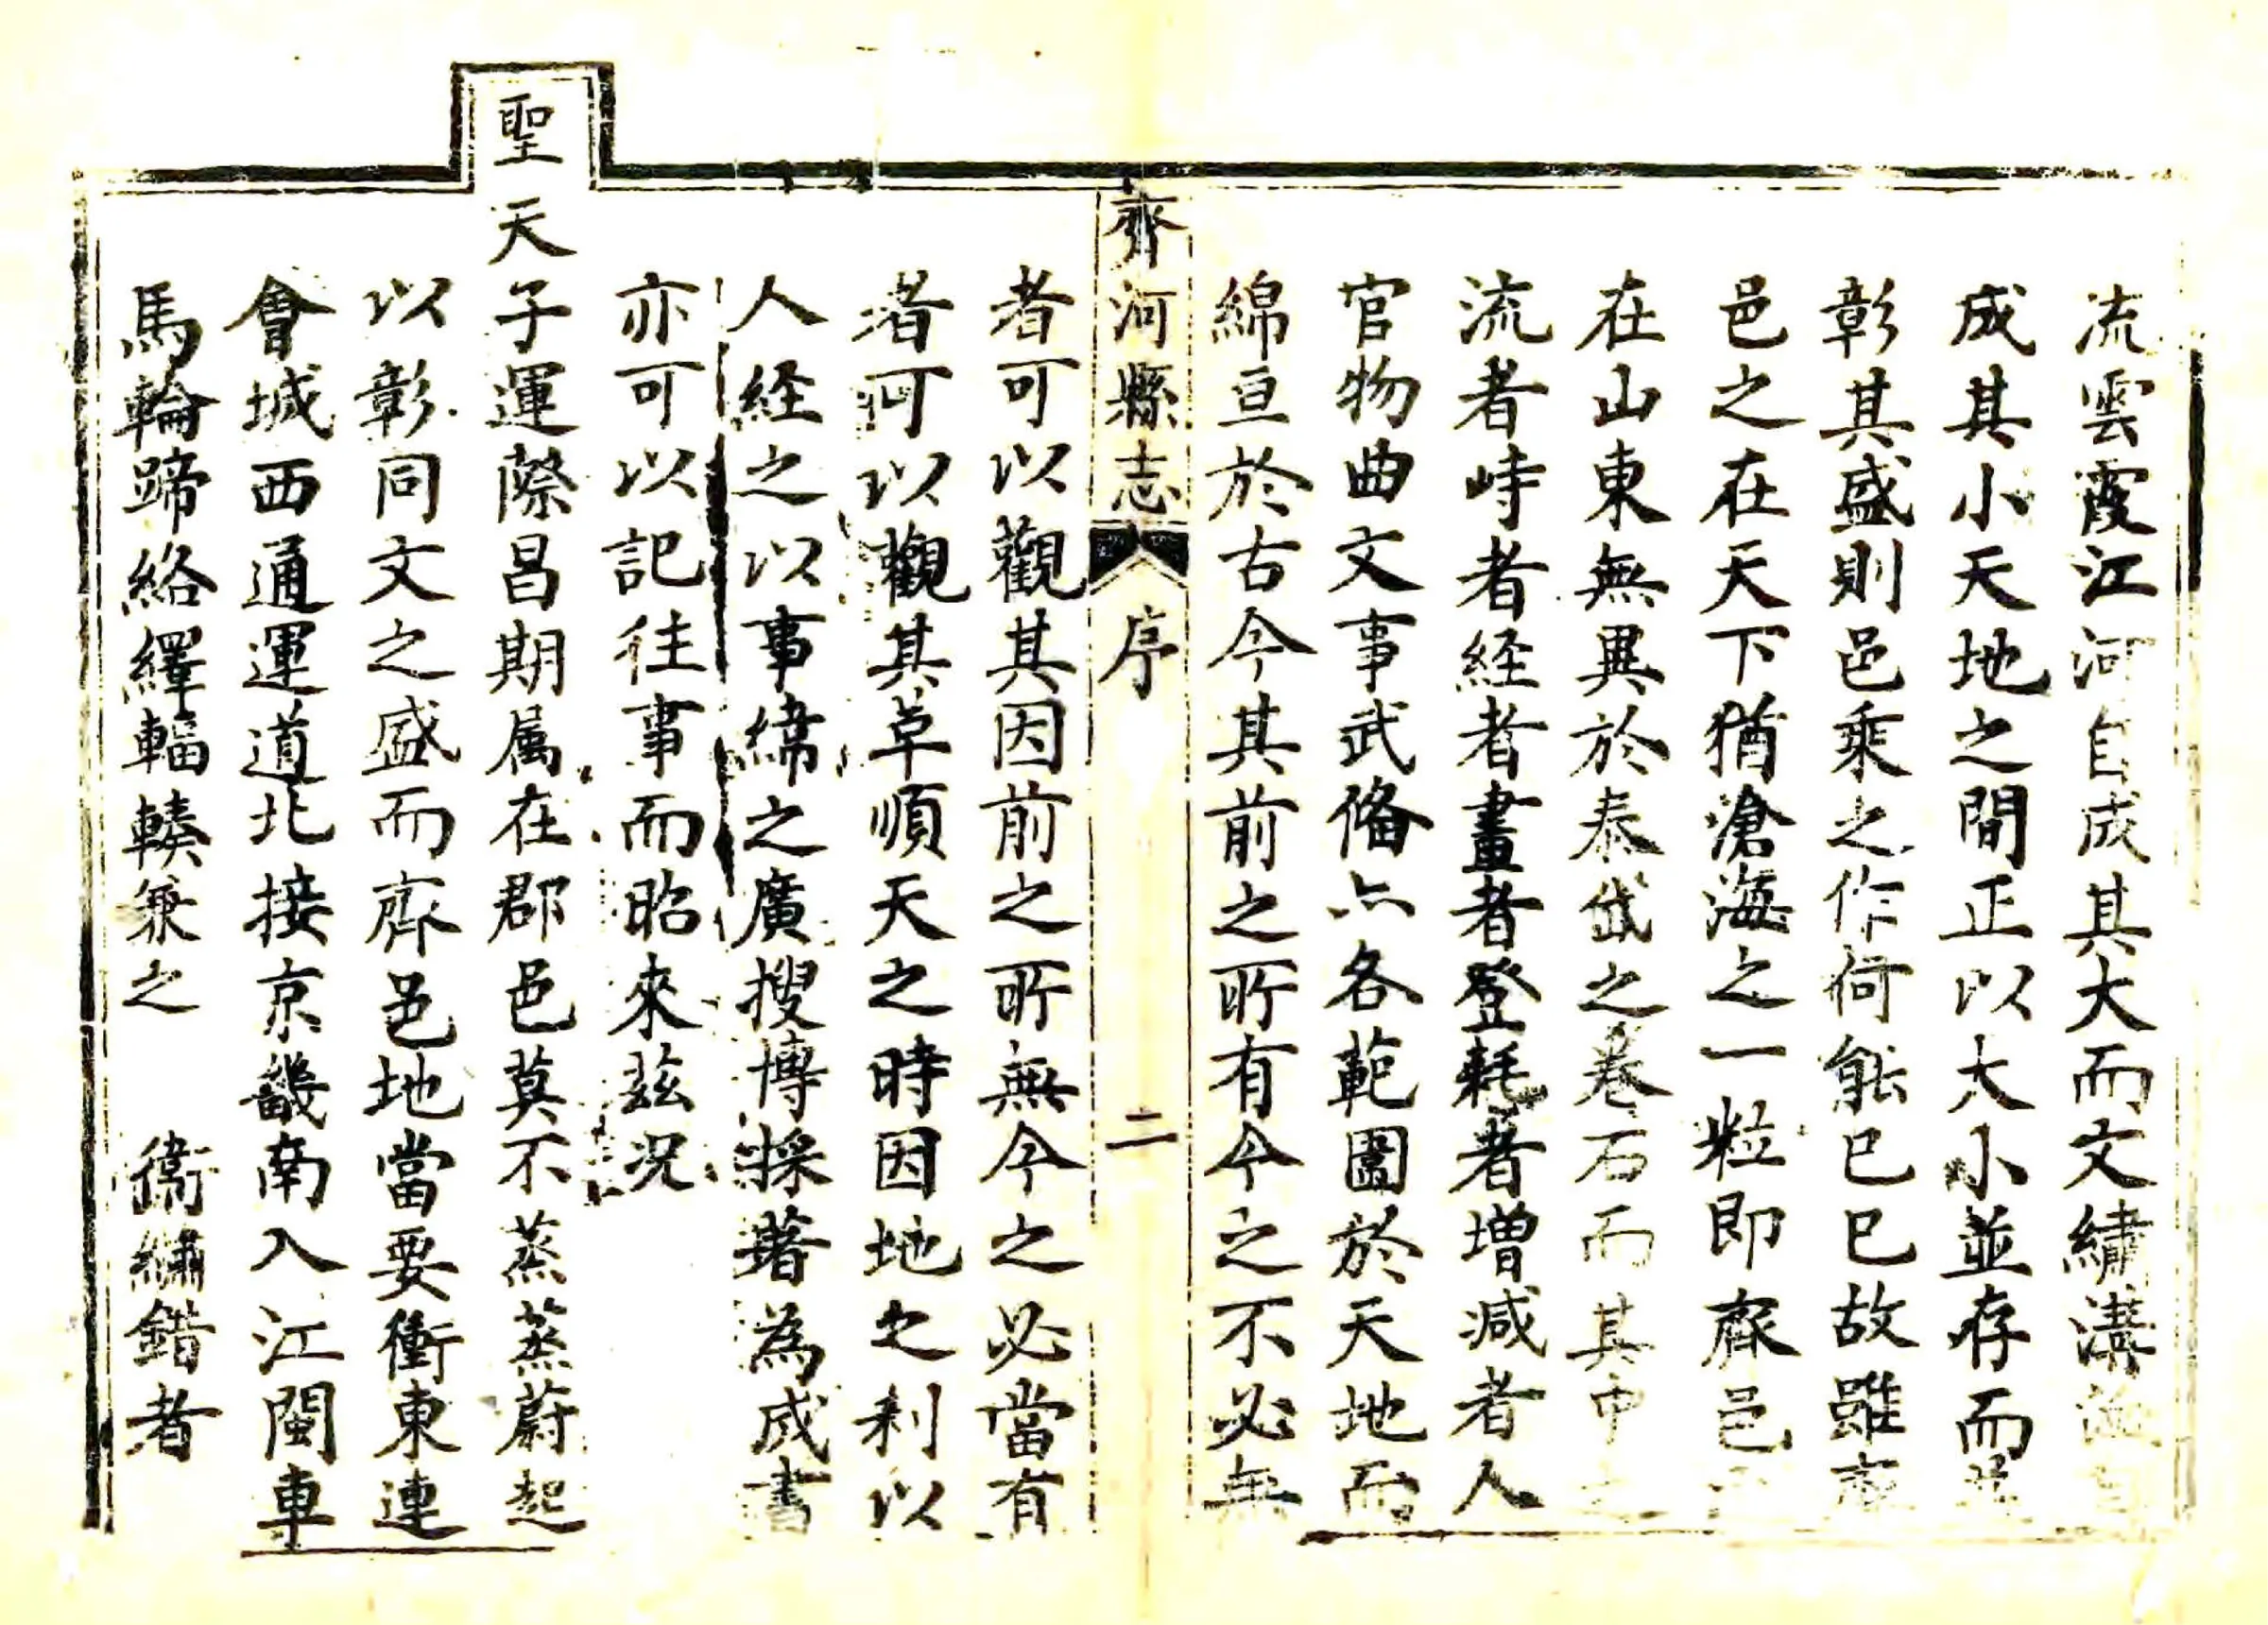 流雲霞江河自成其大而文繡溝
成其小天地之間正以大小並存而
彰其盛則邑乘之作何能已已故雖
邑之在天下猶滄海之一粒即齊邑
在山東無異於泰岱之卷石而其中
流者峙者経者畫者登耗者增減者人
官物曲文事武俻亦各範圍於天地而
綿亘於古今其前之所有今之不必無
齊河縣志 序 二
者可以觀其因前之所無今之必當有
者可以觀其革順天之時因地之利以
人経之以事緯之廣搜博採著為成書
亦可以記往事而昭來茲況
聖天子運際昌期属在郡邑莫不蒸蒸蔚起
以彰同文之盛而齊邑地當要衝東連
會城西通運道北接京畿南入江閩車
馬輪蹄絡繹輻輳兼之 衞繡錯者